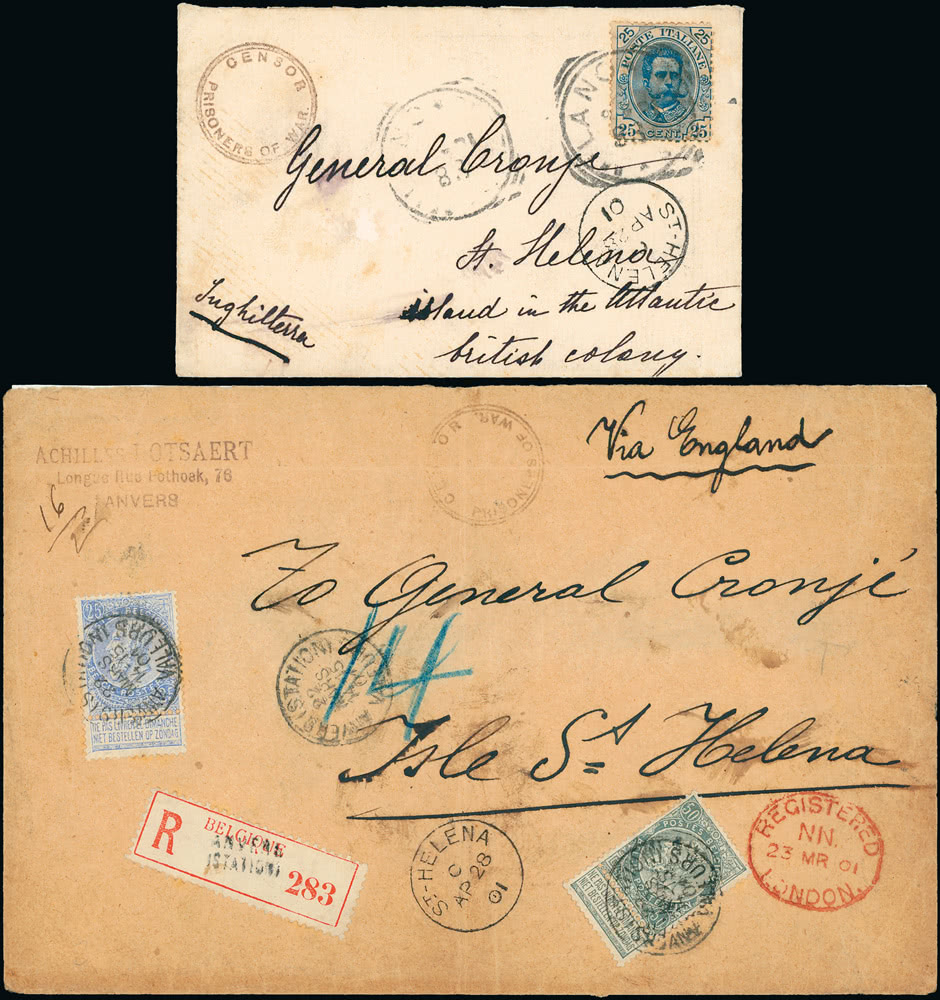 CENSOR
PRISONERS OF WAR.
25 POSTE ITALIANE 25
25 CENT. 25
General Cronje
ST-HELENA
AP 23
01
St. Helena
Inghilterra
island in the Atlantic
british colony.
ACHILLES LOTSAERT
Longue Rue Pothoek, 76
ANVERS
16/2
PRISONERS OF WAR.
Via England
To General Cronjé
25
NE PAS LIVRER LE DIMANCHE
NIET BESTELLEN OP ZONDAG
(STATION)
14
Isle St Helena
R
BELGIQUE
(STATION)
283
ST-HELENA
C
AP 28
01
50
POSTES
REGISTERED
NN.
23 MR 01
LONDON.